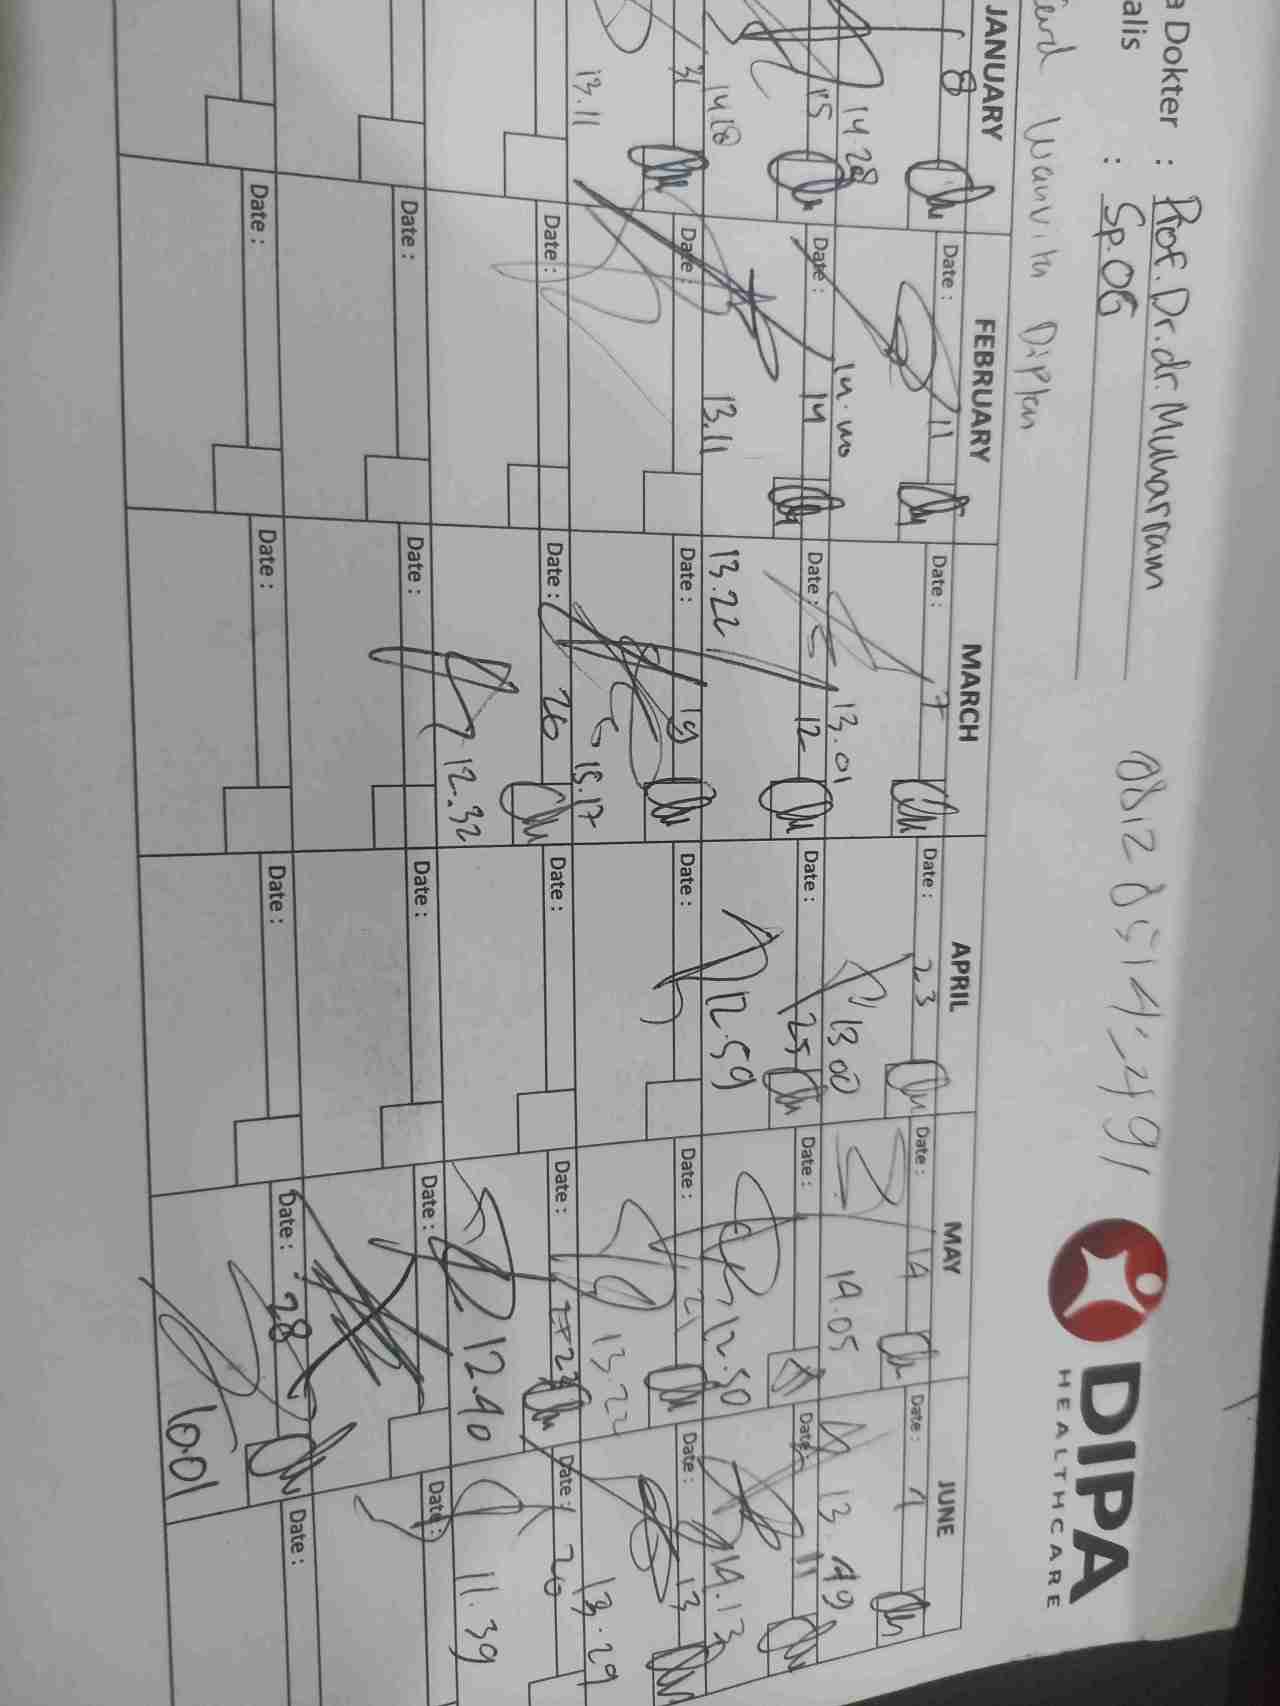 a Dokter : Prof. Dr. dr. Muharram
alis : Sp.OG
0812 0514 4491
DIPA
HEALTHCARE
JANUARY FEBRUARY MARCH APRIL MAY JUNE
8 Date : 11 Date : 7 Date : 23 Date : 14 Date : 4
14.28 13.01 13.00 14.05 13.49
15 Date : 14 Date : 12 Date : 25 Date : Date : 11
1418 13.11 13.22 12.59 12.50 14.13
31 Date : Date : 19 Date : Date : 21 Date : 13
13.11 15.17 13.22 13.29
Date : Date : 26 Date : Date : 23 Date : 20
12.32 12.40 11.39
Date : Date : Date : Date : Date :
Date : Date : Date : Date : 28 Date :
10.01